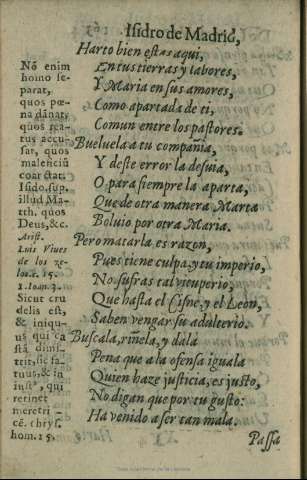 Isidro de Madrid,
Harto bien estas aqui,
En tus tierras y labores,
Y Maria en sus amores,
Como apartada de ti,
Comun entre los pastores.
Bueluela a tu compañia,
Y deste error la desuia,
O para siempre la aparta,
Que de otra manera Marta
Boluio por otra Maria.
Pero matarla es razon,
Pues tiene culpa, y tu imperio,
No sufras tal vituperio,
Que hasta el Cisne, y el Leon,
Saben vengar su adulterio.
Buscala, riñela, y dala
Pena que a la ofensa iguala
Quien haze justicia, es justo,
No digan que por tu gusto:
Ha venido a ser tan mala.
Passa
Nõ enim
homo se-
parat,
quos pœ-
na dãnat,
quos rea-
tus accu-
sat, quos
maleficiũ
coarctat.
Isido. sup.
illud Mat-
th. quos
Deus, &c.
Arist.
Luis Viues
de los ze-
los. c. 15.
1. Ioan. 3.
Sicut cru
delis est,
& iniqu-
us qui ca
stã dimi-
ttit, sic fa-
tuus, & in
iustꝰ, qui
retinet
meretri-
cẽ. chrys.
hom. 15.